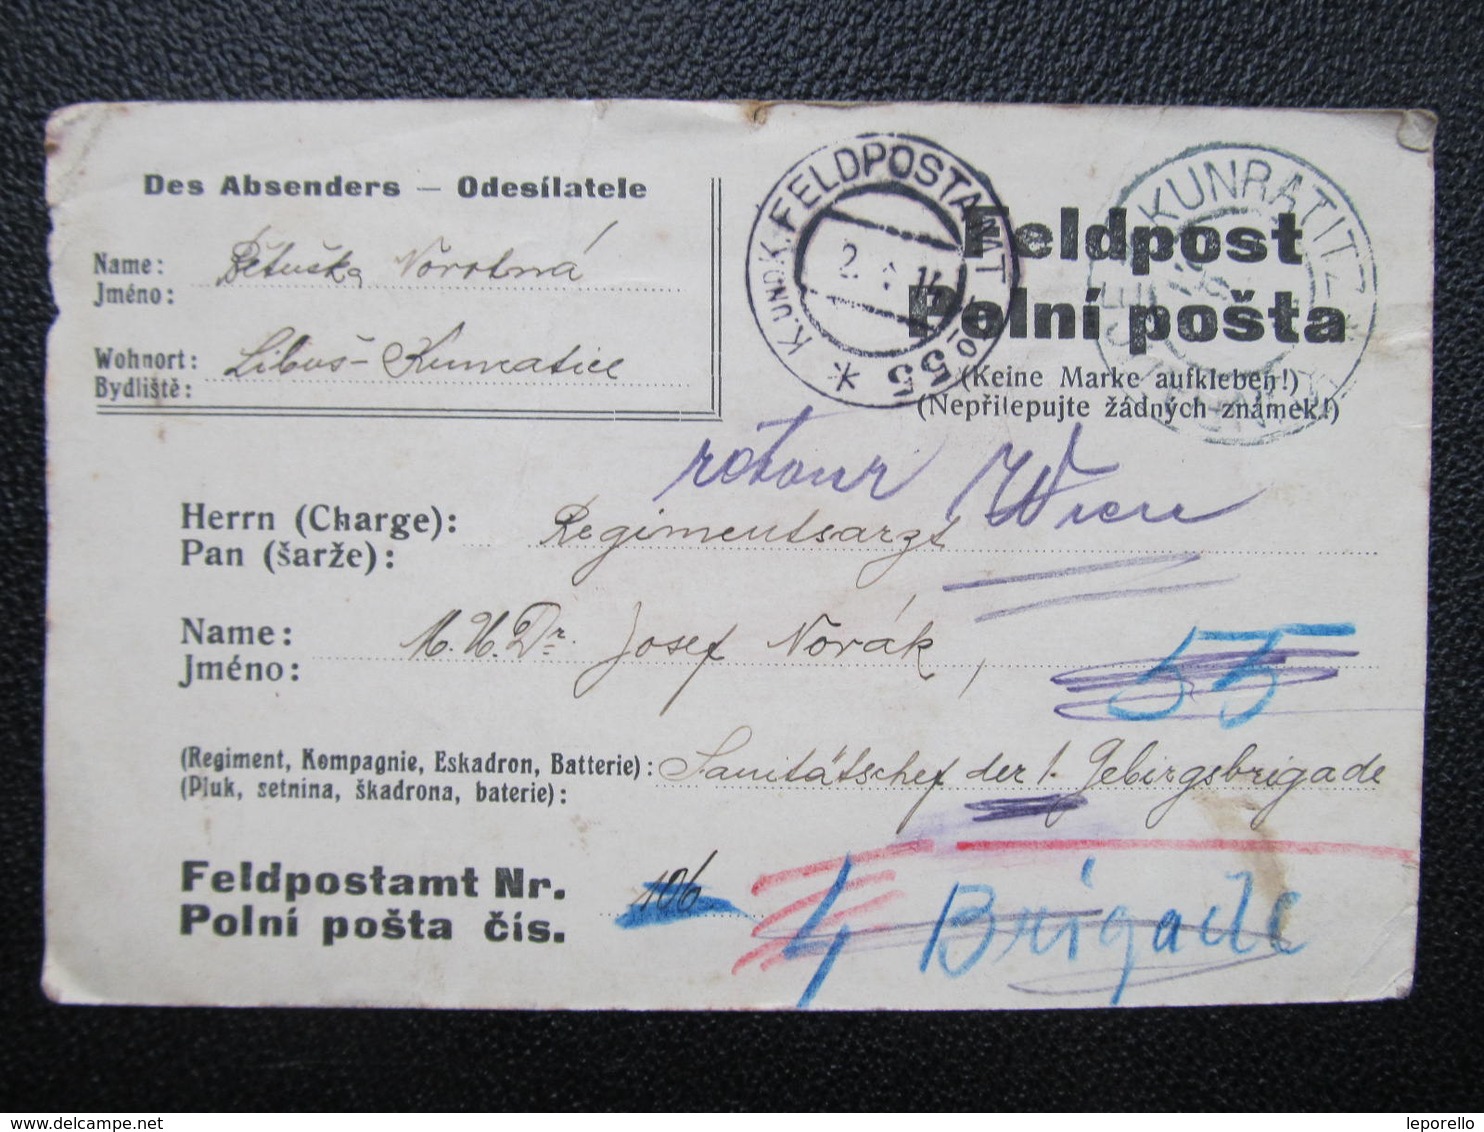 Des Absenders — Odesílatele
Name: Bětuška Novotná
Jméno:
Wohnort: Libuš-Kunratice
Bydliště:
K. UND K. FELDPOSTAMT 55
2. 14
KUNRATITZ
KUNRATICE
Feldpost
Polní pošta
(Keine Marke aufkleben!)
(Nepřilepujte žádných známek!)
retour Wien
Herrn (Charge): Regimentsarzt
Pan (šarže):
Name: M.U.Dr. Josef Novák,
Jméno:
55
(Regiment, Kompagnie, Eskadron, Batterie): Sanitätschef der 1. Gebirgsbrigade
(Pluk, setnina, škadrona, baterie):
Feldpostamt Nr. 106
Polní pošta čís.
4 Brigade
leporello